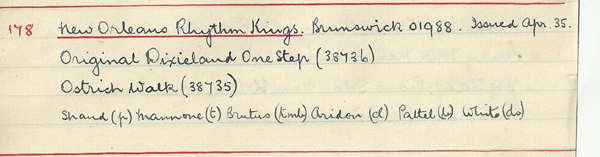 178 New Orleans Rhythm Kings. Brunswick 01988. Issued Apr. 35.
Original Dixieland One Step (38736)
Ostrich Walk (38735)
Shand (p) Mannone (t) Brutus (tmb) Aridon (cl) Pattel (b) White (ds)